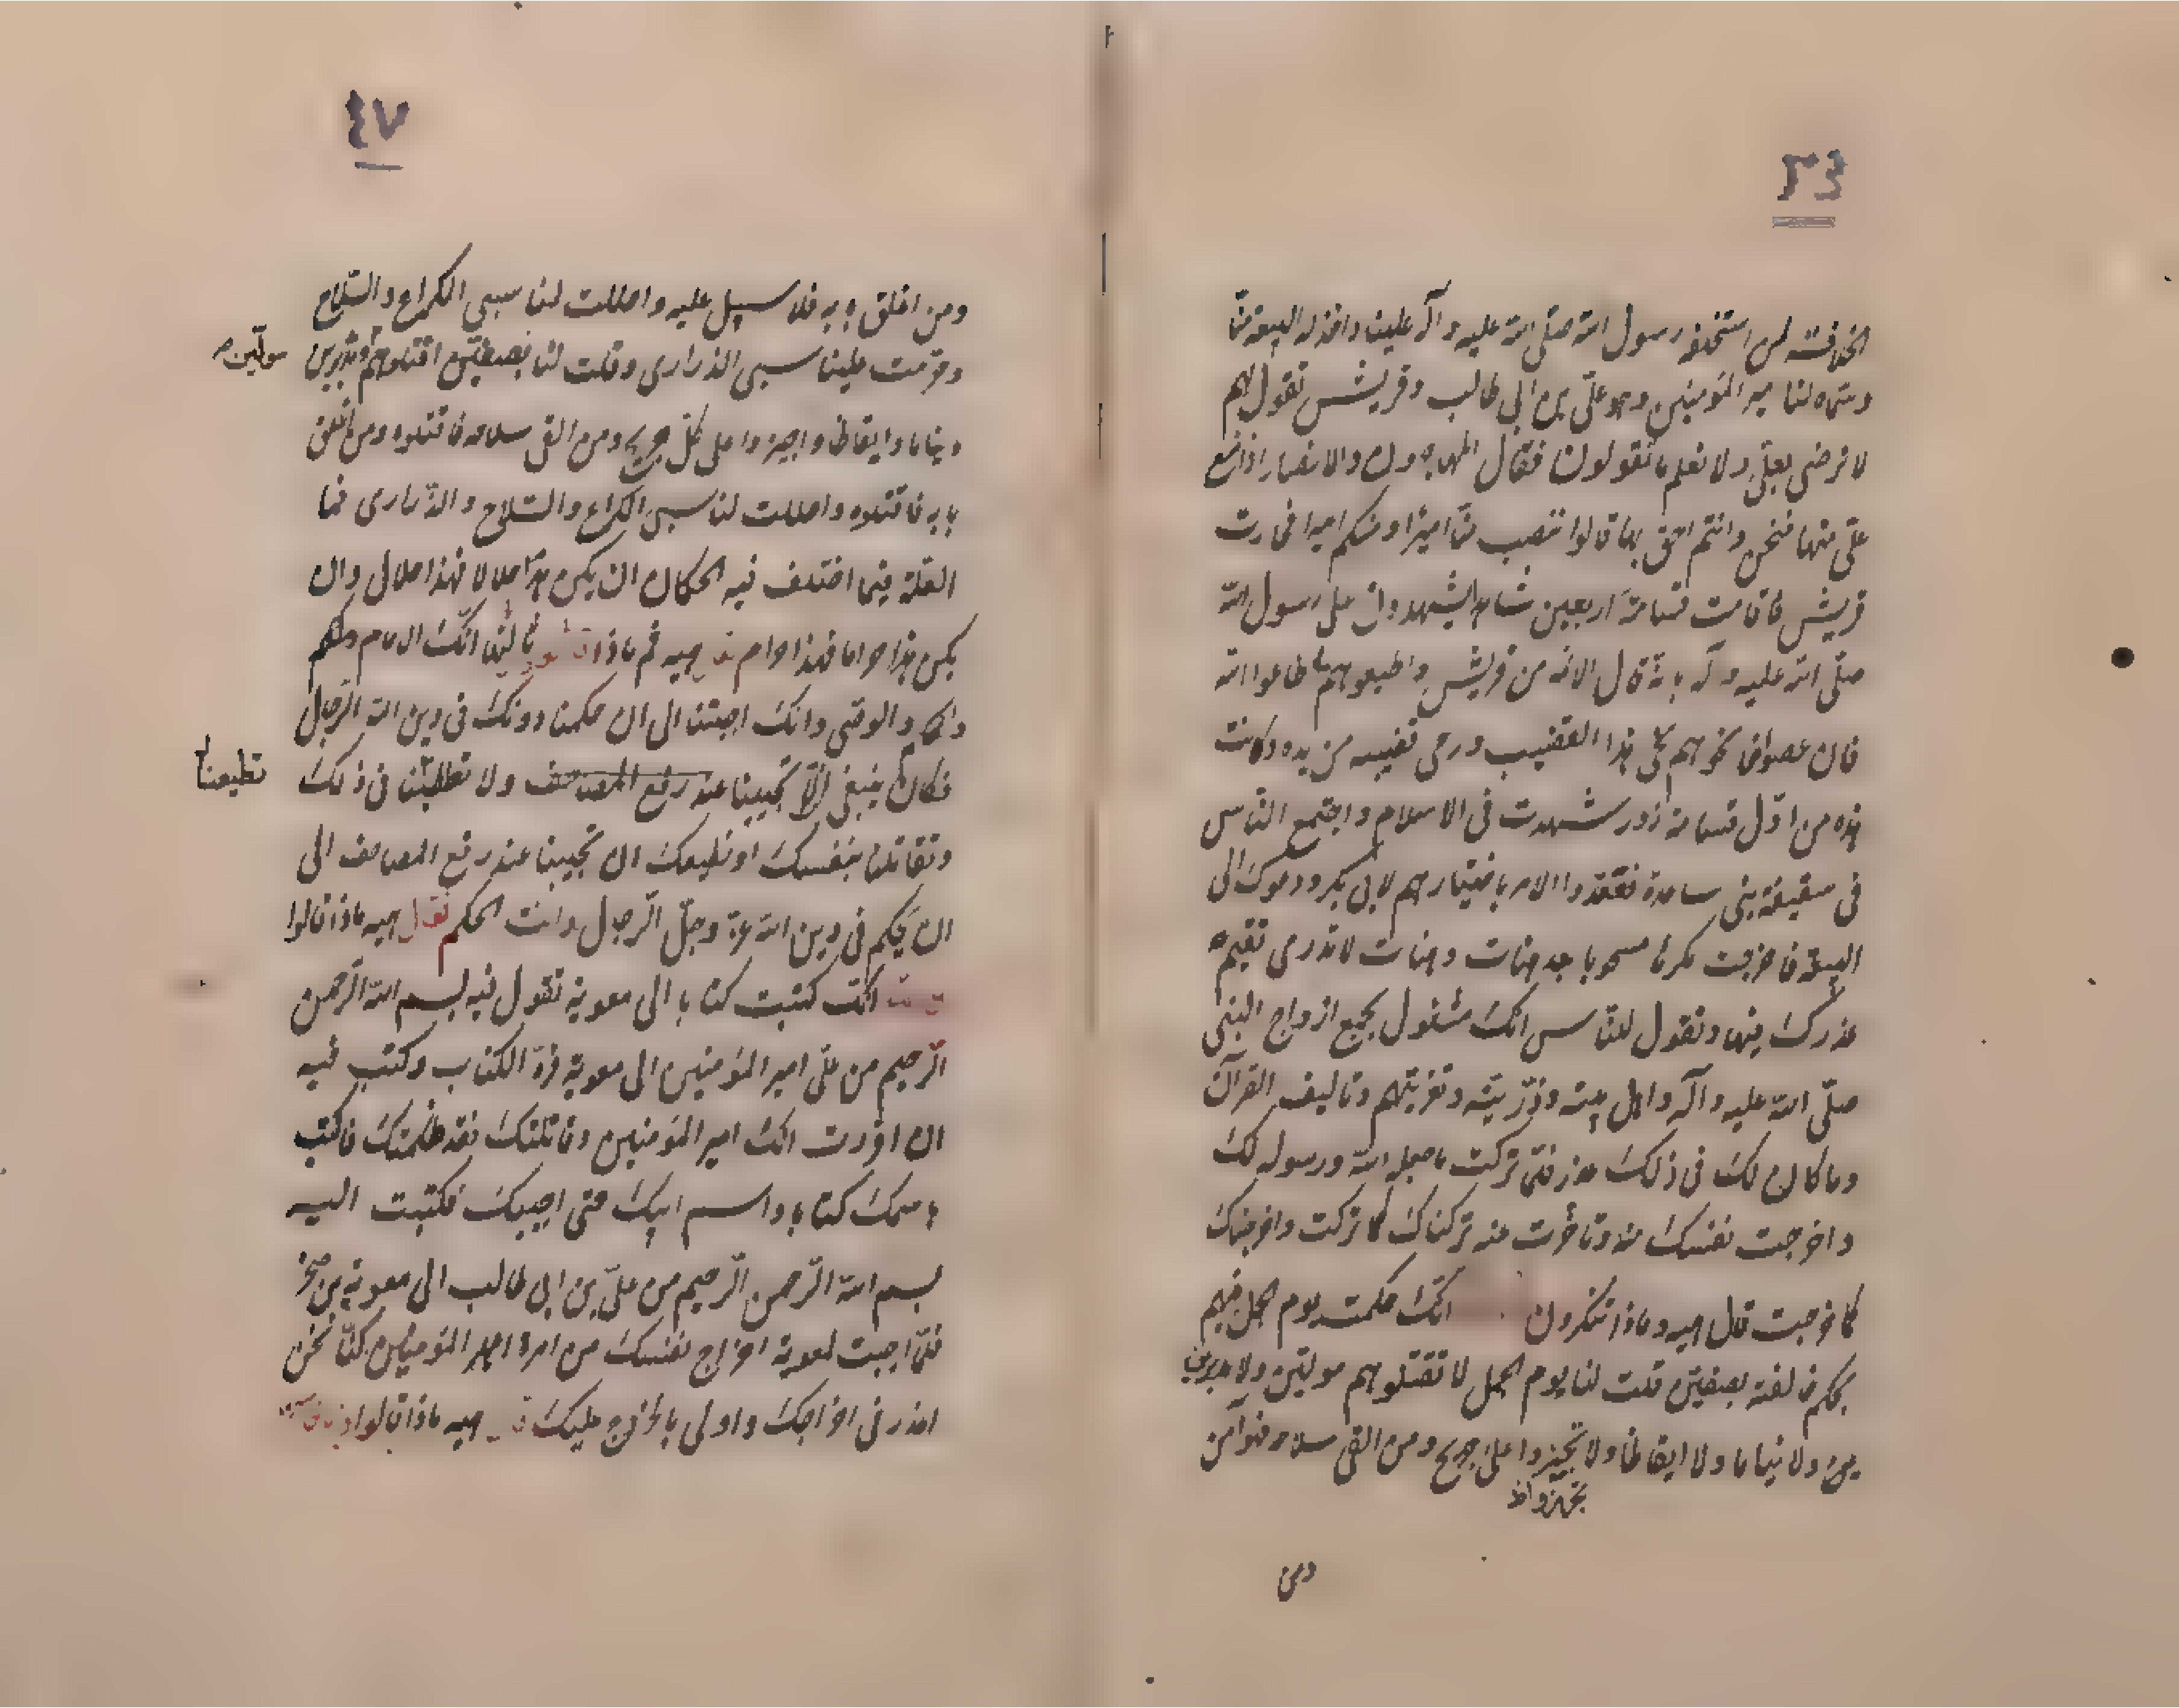 ٤٦
الخلافة لمن استخلفه رسول الله صلّى الله عليه وآله علينا واخذ له البيعة منّا
وسمّاه لنا امير المؤمنين وهو علىّ بن ابى طالب وقريش تقول لهم
لا نرضى بعلىّ ولا نعلم ما تقولون فقال المهاجرون والانصار اذا منع
علىّ منها فنحن وانتم احق بها قالوا ننصب منّا اميرا ومنكم اميرا فجارت
قريش فاقامت قسامة اربعين شاهدا يشهدون على رسول الله
صلّى الله عليه وآله بانّه قال الائمه من قريش واطيعوهم ما طاعوا الله
فان عصوا فالحوهم لحى هذا القضيب ورمى قضيبه من يده وكانت
هذه من اوّل قسامة زور شهدت فى الاسلام واجتمع النّاس
فى سقيفة بنى ساعدة فعقدوا الامر باختيارهم لابى بكر ودعوك الى
البيعة فاخرجت مكرها مسحوبا بعد هنات وهنات لا ندرى تقيم
عذرك فيها وتقول للنّاس انّك مشغول بجمع ازواج النبى
صلّى الله عليه وآله واهل بيته وذرّيته وتعزيتهم وتاليف القرآن
وما كان لك فى ذلك عذر فلمّا تركت ما جعله الله ورسوله لك
واخرجت نفسك منه وتاخّرت عنه تركناك كما تركت واخرجناك
كما خرجت قال هيه وماذا تنكرون انّك حكمت يوم الجمل فيهم
بحكم خالفته بصفيّن قلت لنا يوم الجمل لا تقتلوهم مولّين ولا مدبرين
ين ولا نياما ولا ايقاظا ولا تجيزوا على جريح ومن القى سلاحه فهو آمن
تجهزوا خ
ومن
٤٧
ومن اغلق بابه فلا سبيل عليه واحللت لنا سبى الكراع والسّلاح
وحرّمت علينا سبى الذرارى وقلت لنا بصفيّن اقتلوهم مدبرين
مولّين
ونياما وايقاظا واجيزوا على كلّ جريح ومن القى سلاحه فاقتلوه ومن اغلق
بابه فاقتلوه واحللت لنا سبى الكراع والسّلاح والذّرارى فما
العلّة فيما اختلف فيه الحكمان ان يكن هذا حلالا فهذا حلال وان
يكن هذا حراما فهذا حرام هيه ثم ماذا انّك الامام
والحكم والوصّى وانّك اجبتنا الى ان حكمنا دونك فى دين الله الرّجال
فكان ينبغى الّا تجيبنا عند رفع المصاحف ولا تطلبنا فى ذلك
تطيعنا
وتقاتلنا بنفسك او نطيعك ان تجيبنا عند رفع المصاحف الى
ان يحكم فى دين الله عزّ وجلّ الرّجال وانت الحكم فقال هيه ماذا قالوا
انّك كتبت كتابا الى معوية تقول فيه بسم الله الرّحمن
الرّحيم من علىّ امير المؤمنين الى معوية فردّ الكتاب وكتب فيه
ان اقررت انّك امير المؤمنين وقاتلتك فقد ظلمتك فاكتب
باسمك كتابا واسم ابيك حتى اجيبك فكتبت اليه
بسم الله الرّحمن الرّحيم من علىّ بن ابى طالب الى معوية بن صخر
فلمّا اجبت لمعوية اخراج نفسك من امرة امير المؤمنين كنّا نحن
اعذر فى اخراجك واولى بالخروج عليك هيه ماذا قالوا